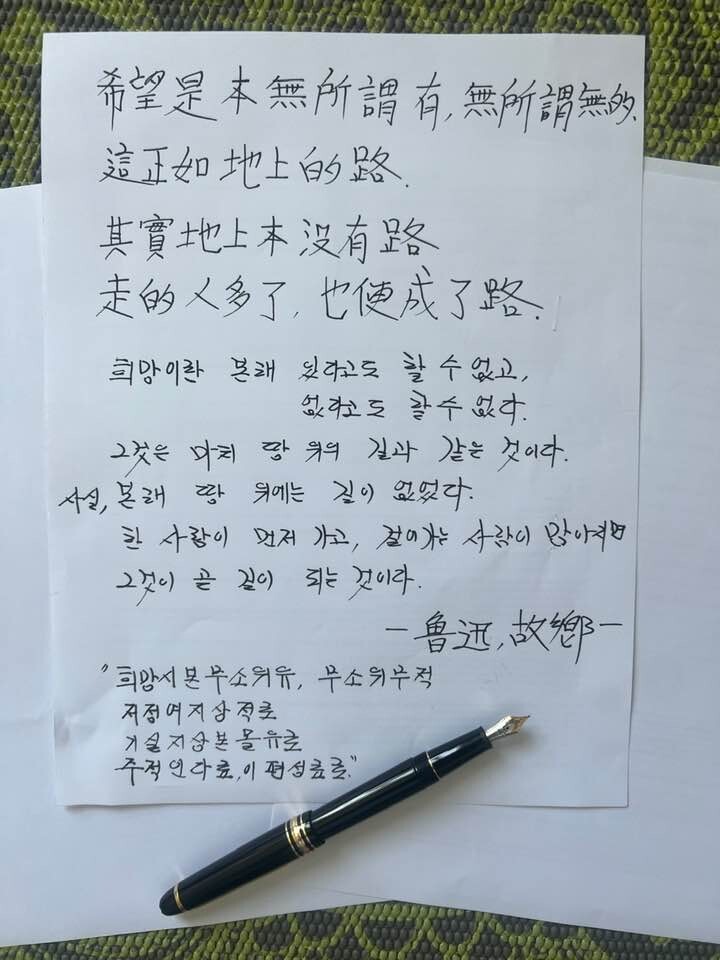 希望是本無所謂有, 無所謂無的.
這正如地上的路.
其實地上本没有路
走的人多了, 也便成了路.
희망이란 본래 있다고도 할 수 없고,
없다고도 할 수 없다.
그것은 마치 땅 위의 길과 같은 것이다.
사실, 본래 땅 위에는 길이 없었다.
한 사람이 먼저 가고, 걸어가는 사람이 많아지면
그것이 곧 길이 되는 것이다.
- 魯迅, 故鄕 -
"희망시본무소위유, 무소위무적
저정여지상적로
기실지상본몰유로
주적인다료, 이편성료로."